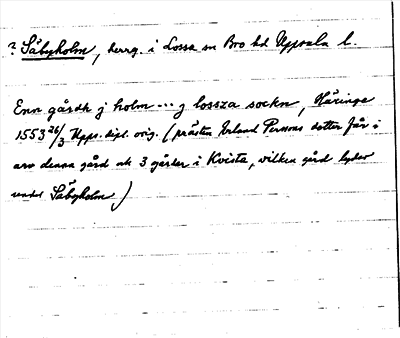 ? Säbyholm, herrg. i Lossa sn Bro hd Uppsala l.
Enn gårdh j holm --- j lossza sockn, Häringe
1553 26/3 Upps. dipl. orig. (prästen Erland Persons dotter får i
arv denna gård ok 3 gårder i Kvista, vilken gård lyder
under Säbyholm)